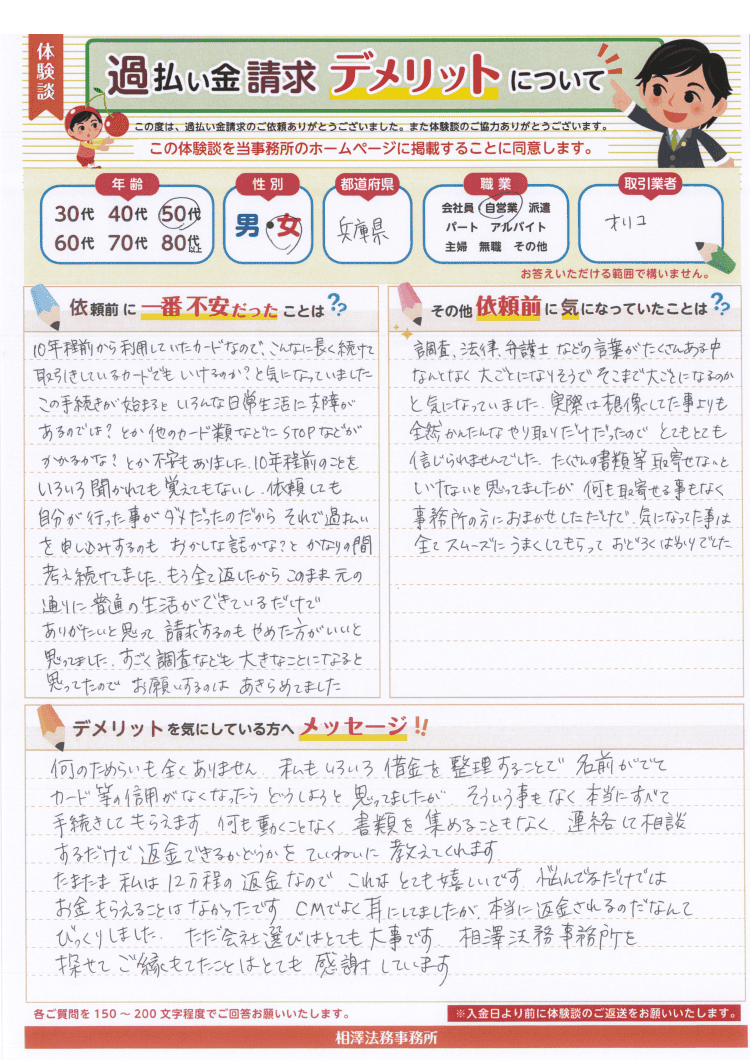 体験談
過払い金請求 デメリットについて
この度は、過払い金請求のご依頼ありがとうございました。また体験談のご協力ありがとうございます。
この体験談を当事務所のホームページに掲載することに同意します。
年齢
30代 40代 50代
60代 70代 80代以上
性別
男・女
都道府県
兵庫県
職業
会社員 自営業 派遣
パート アルバイト
主婦 無職 その他
取引業者
オリコ
お答えいただける範囲で構いません。
依頼前に一番不安だったことは??
10年程前から利用していたカードなので、こんなに長く続けて
取引きしているカードでもいけるのか?と気になっていました
この手続きが始まるといろんな日常生活に支障が
あるのでは?とか他のカード類などにSTOPなどが
かかるかな?とか不安もありました。10年程前のことを
いろいろ聞かれても覚えてもないし、依頼しても
自分が行った事がダメだったのだから それで過払い
を申し込みするのも おかしな話かな?と かなりの間
考え続けてました。もう全て返したから このまま元の
通りに普通の生活ができているだけで
ありがたいと思って 請求するのもやめた方がいいと
思ってました。すごく調査なども 大きなことになると
思ってたので お願いするのは あきらめてました
その他依頼前に気になっていたことは??
調査、法律、弁護士 などの言葉がたくさんある中
なんとなく 大ごとになりそうで そこまで大ごとになるのか
と気になっていました。実際は想像してた事よりも
全然かんたんな やり取りだけだったので とてもとても
信じられませんでした。たくさんの書類等取寄せないと
いけないと思ってましたが 何も取寄せる事もなく
事務所の方におまかせしただけで、気になってた事は
全てスムーズに うまくしてもらって おどろくばかりでした
デメリットを気にしている方へメッセージ!!
何のためらいも全くありません 私もいろいろ 借金を 整理することで 名前がでて
カード等の信用がなくなったらどうしようと 思ってましたが そういう事もなく 本当にすべて
手続きしてもらえます 何も動くことなく 書類を 集めることもなく 連絡して相談
するだけで 返金できるかどうかを ていねいに 教えてくれます
たまたま 私は 12万程の返金なので これは とても嬉しいです 悩んでるだけでは
お金もらえることは なかったです CMでよく耳にしてましたが、本当に返金されるのだなんて
びっくりしました。 ただ会社選びはとても大事です 相澤法務事務所を
探せて ご縁もてたことはとても 感謝しています
各ご質問を150~200文字程度でご回答お願いいたします。
※入金日より前に体験談のご返送をお願いいたします。
相澤法務事務所